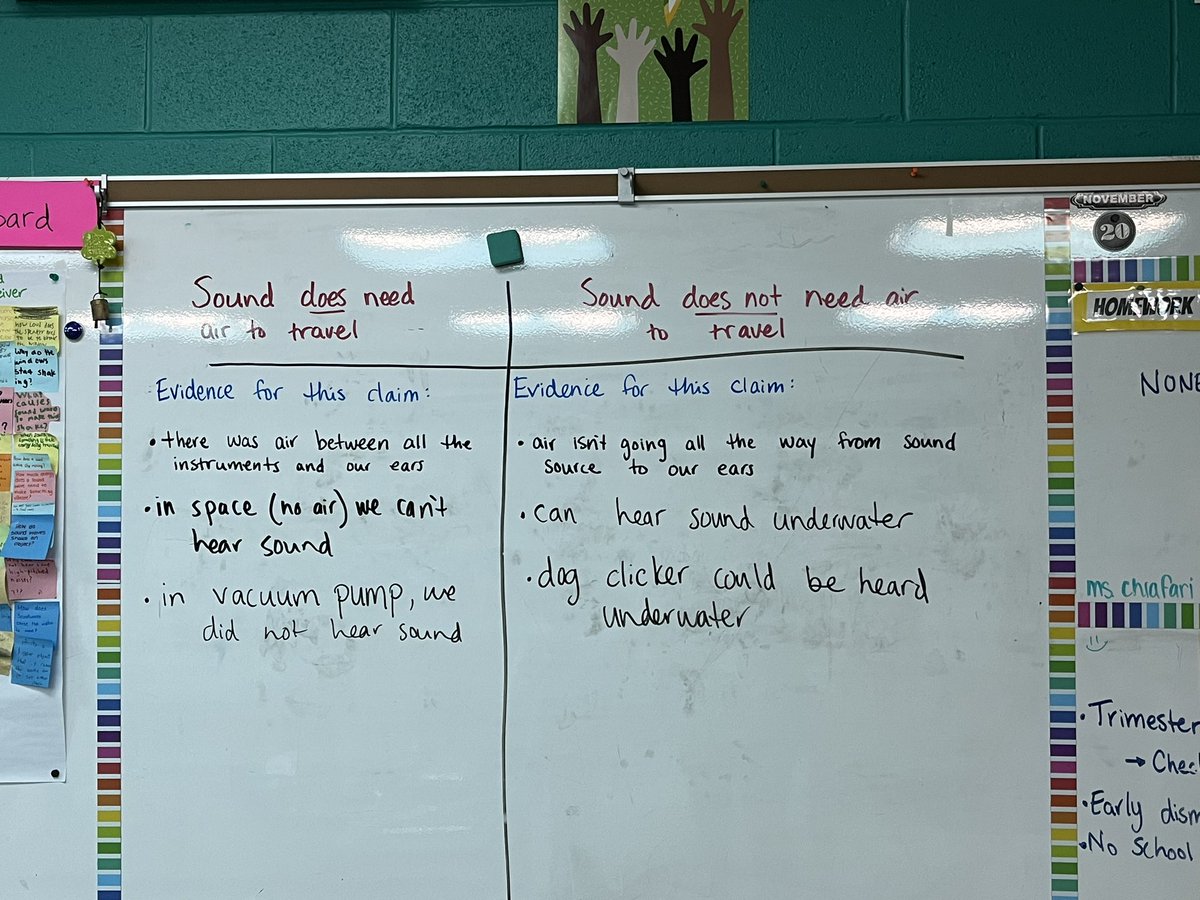 oard
eiver
Why do the
windows
shak
ing?
What
causes
sound waves
to make things
shake?
Sound does need
air to travel
Evidence for this claim:
• there was air between all the
instruments and our ears
• in space (no air) we can't
hear sound
• in vacuum pump, we
did not hear sound
Sound does not need air
to travel
Evidence for this claim:
• air isn't going all the way from sound
source to our ears
• can hear sound underwater
• dog clicker could be heard
underwater
NOVEMBER
20
HOMEWORK
NONE
ms. chiafari
• Trimester
→ Chec
• Early dism
• No School